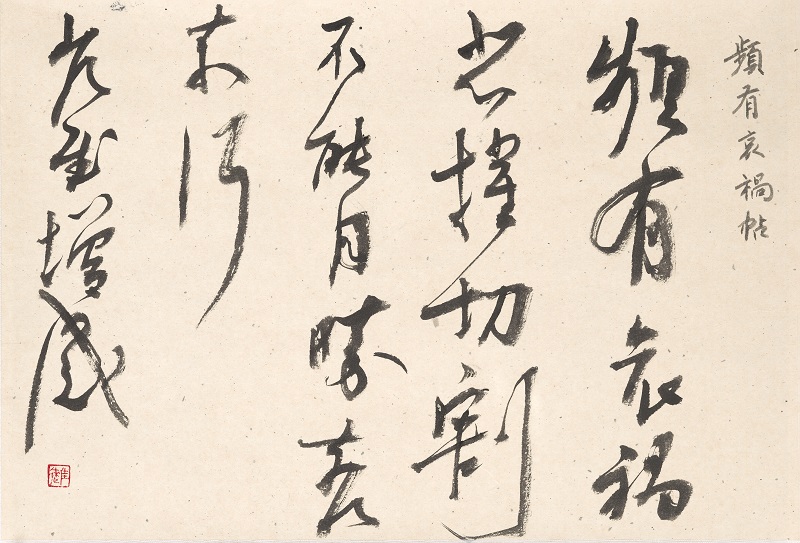 頻有哀禍帖
頻有哀禍
悲摧切割
不能自勝奈何
奈何
省慰增感